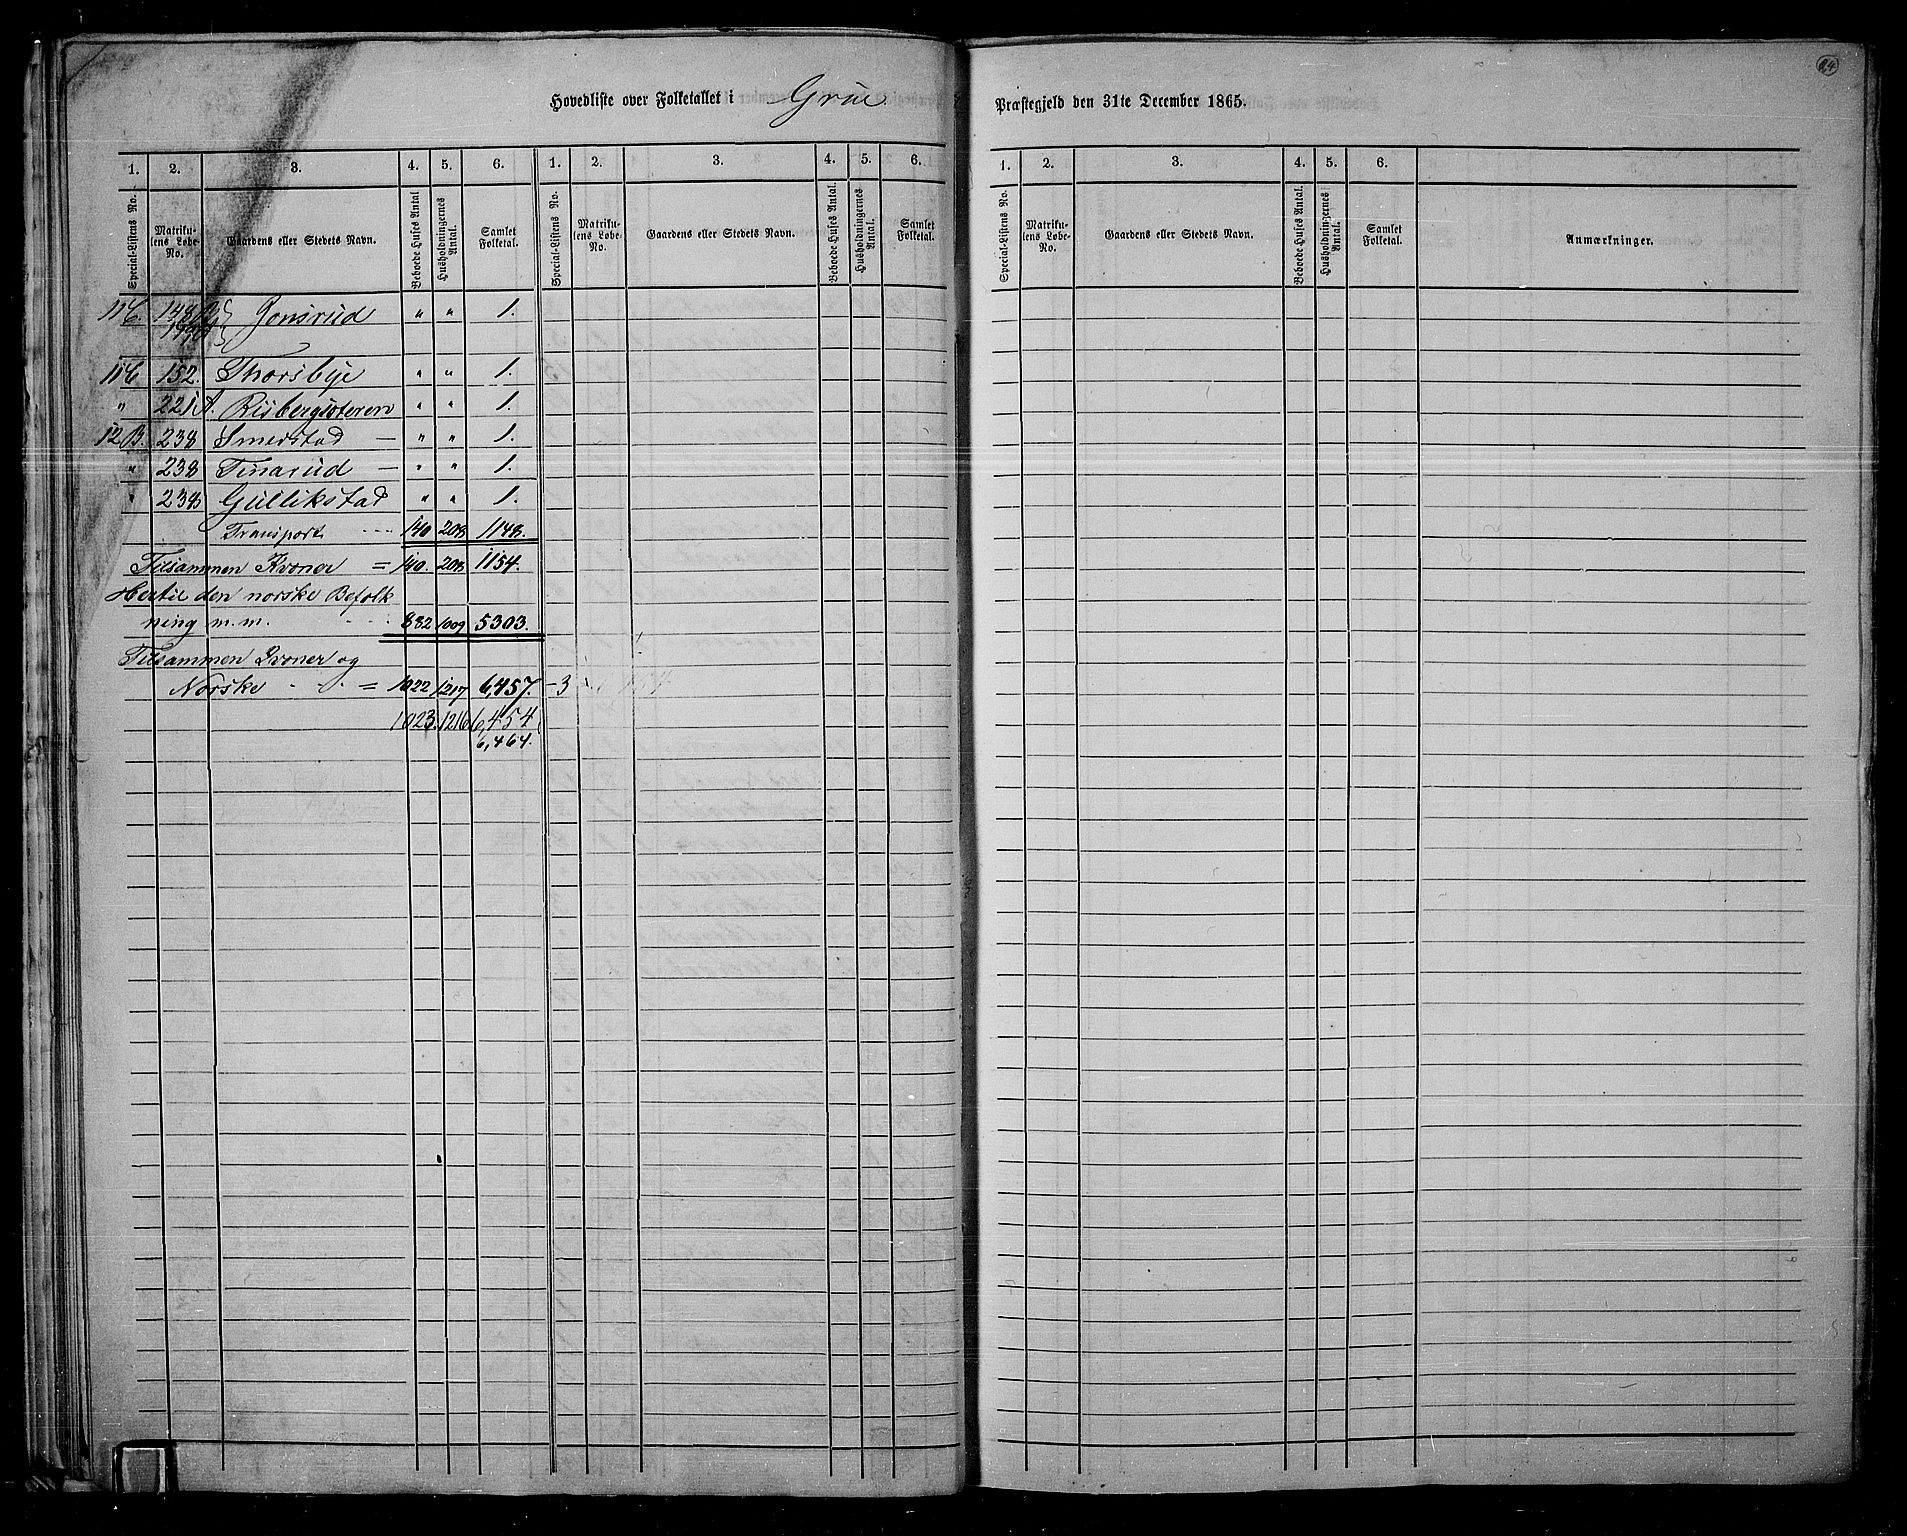 24
Hovedliste over Folketallet i Grue Præstegjeld den 31te December 1865.
1. 2. 3. 4. 5. 6. 1. 2. 3. 4. 5. 6. 1. 2. 3. 4. 5. 6.
Special-Listens No. Matrikulens Løbe-No. Gaardens eller Stedets Navn. Beboede Huses Antal. Husholdningernes Antal. Samlet Folketal. Special-Listens No. Matrikulens Løbe-No. Gaardens eller Stedets Navn. Beboede Huses Antal. Husholdningernes Antal. Samlet Folketal. Special-Listens No. Matrikulens Løbe-No. Gaardens eller Stedets Navn. Beboede Huses Antal. Husholdningernes Antal. Samlet Folketal. Anmærkninger.
11C. 148 Jonsrud " " 1.
11C 152. Thorsbye " " 1.
" 221A. Riisbergsæteren " " 1.
12B. 238 Smerstad — " " 1.
" 238 Tinarud — " " 1.
" 238 Gullikstad " " 1.
Transport 140 208 1148.
Tilsammen Kvæner = 140. 208 1154.
Hertil den norske Befolk
ning m.m. 882 1009 5303.
Tilsammen Kvæner og
Norske = 1022 1217 6,457. -3
1023. 1216 6,454
6,464.